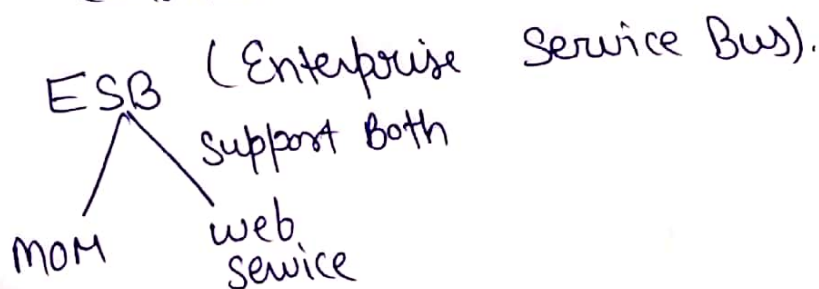 ESB (Enterprise Service Bus).
Support Both
MOM web
service